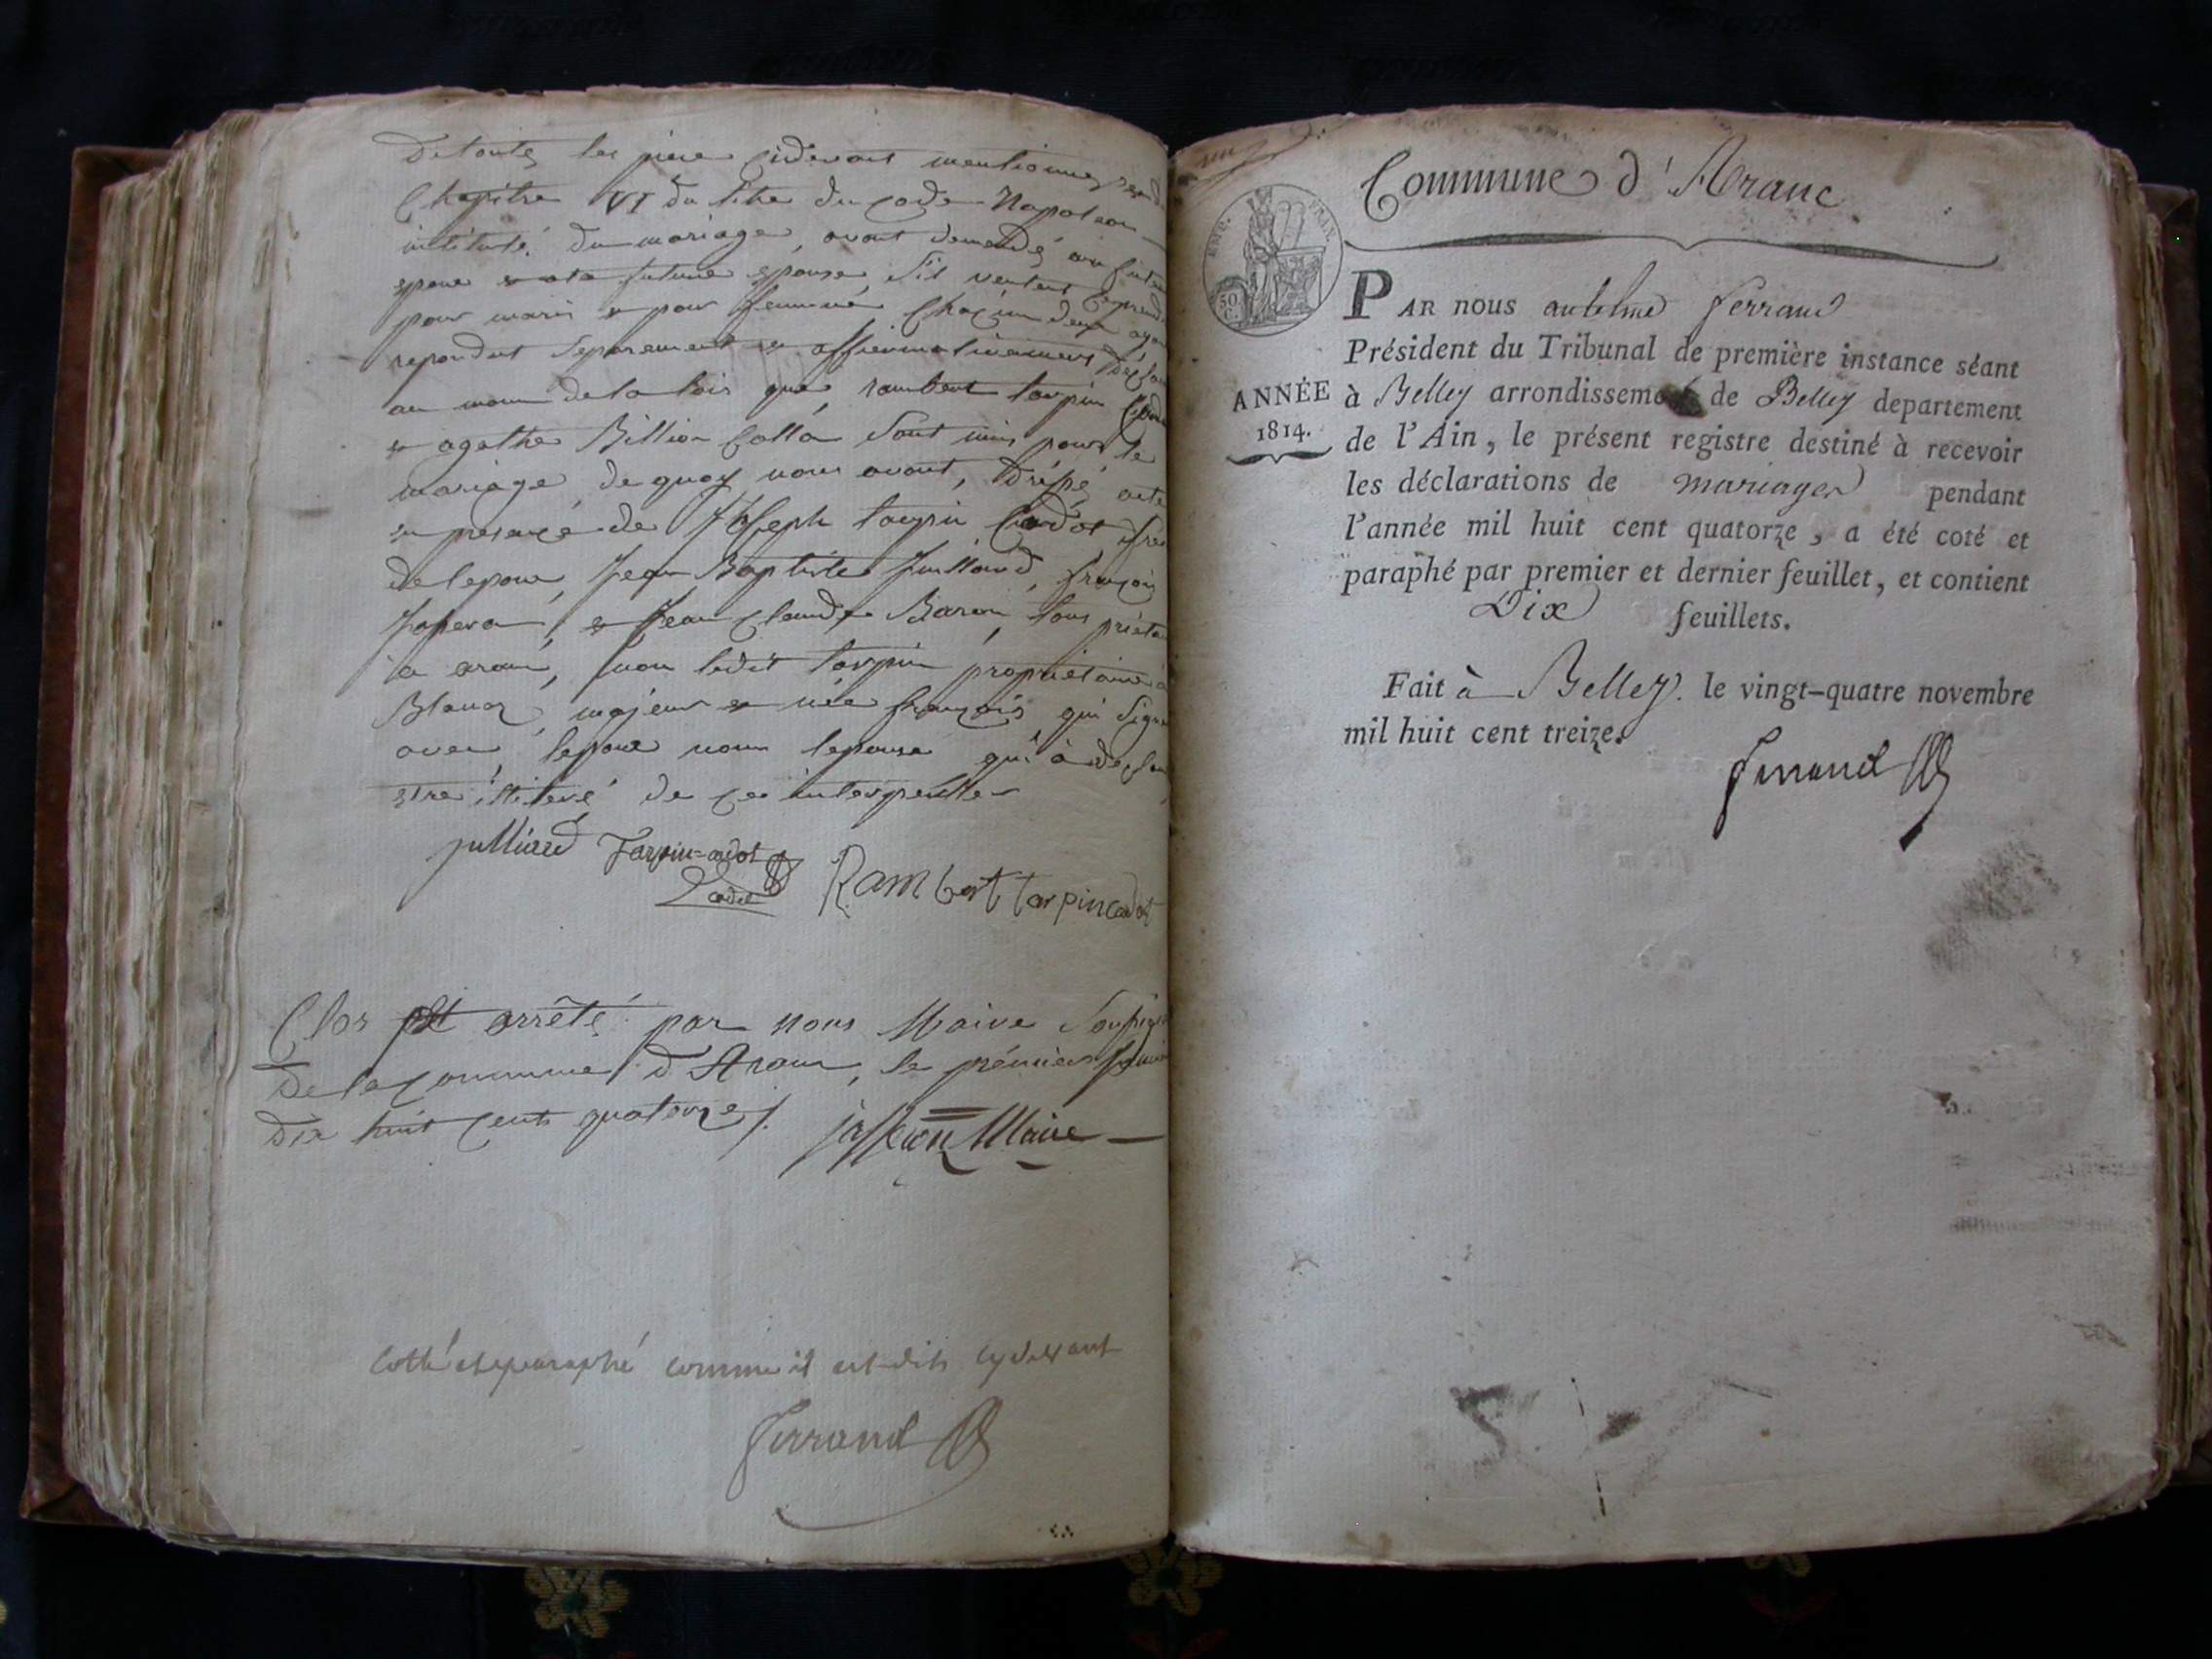 De toutes les piece cidevant mentionnes
Chapitre VI du titre du Code Napoleon
intitulé du mariage, avont demendé au futur
epoux & ala future epouse, s'il veulent
pour maris & pour femme Chaçun deux
repondut separement & affirmativement
au nom de la lois que rambert tarpin
& agathe Billion Colla sont unis pour le
mariage, de quoy nous avont, drésé acte
en presance de Joseph tarpin Cadot
de lepoux, Jean Baptiste Juilland, françois
& Jean Claude Baron, tous
a aranc, non ledit tarpin propriétaire
majeurs & née français qui
avec lepoux nonn lepouse qui à
estre illiteré de ce interpellée
julliard Tarpin=cadot
Cadet Rambert tarpincadot
Clos et arrêté par nous Maire
de la commune d'Aranc, le prémier
dix huit cents quatorze /.
Maire
Cotté et paraphé comme il est dit cy devant
ferrand
Commune d'Aranc
EMP. FRAN.
50
C.
PAR nous antelme ferrand
Président du Tribunal de première instance séant
ANNÉE
1814.
à Belley arrondissement de Belley departement
de l'Ain, le présent registre destiné à recevoir
les déclarations de mariages pendant
l'année mil huit cent quatorze, a été coté et
paraphé par premier et dernier feuillet, et contient
Dix feuillets.
Fait à Belley. le vingt-quatre novembre
mil huit cent treize.
ferrand